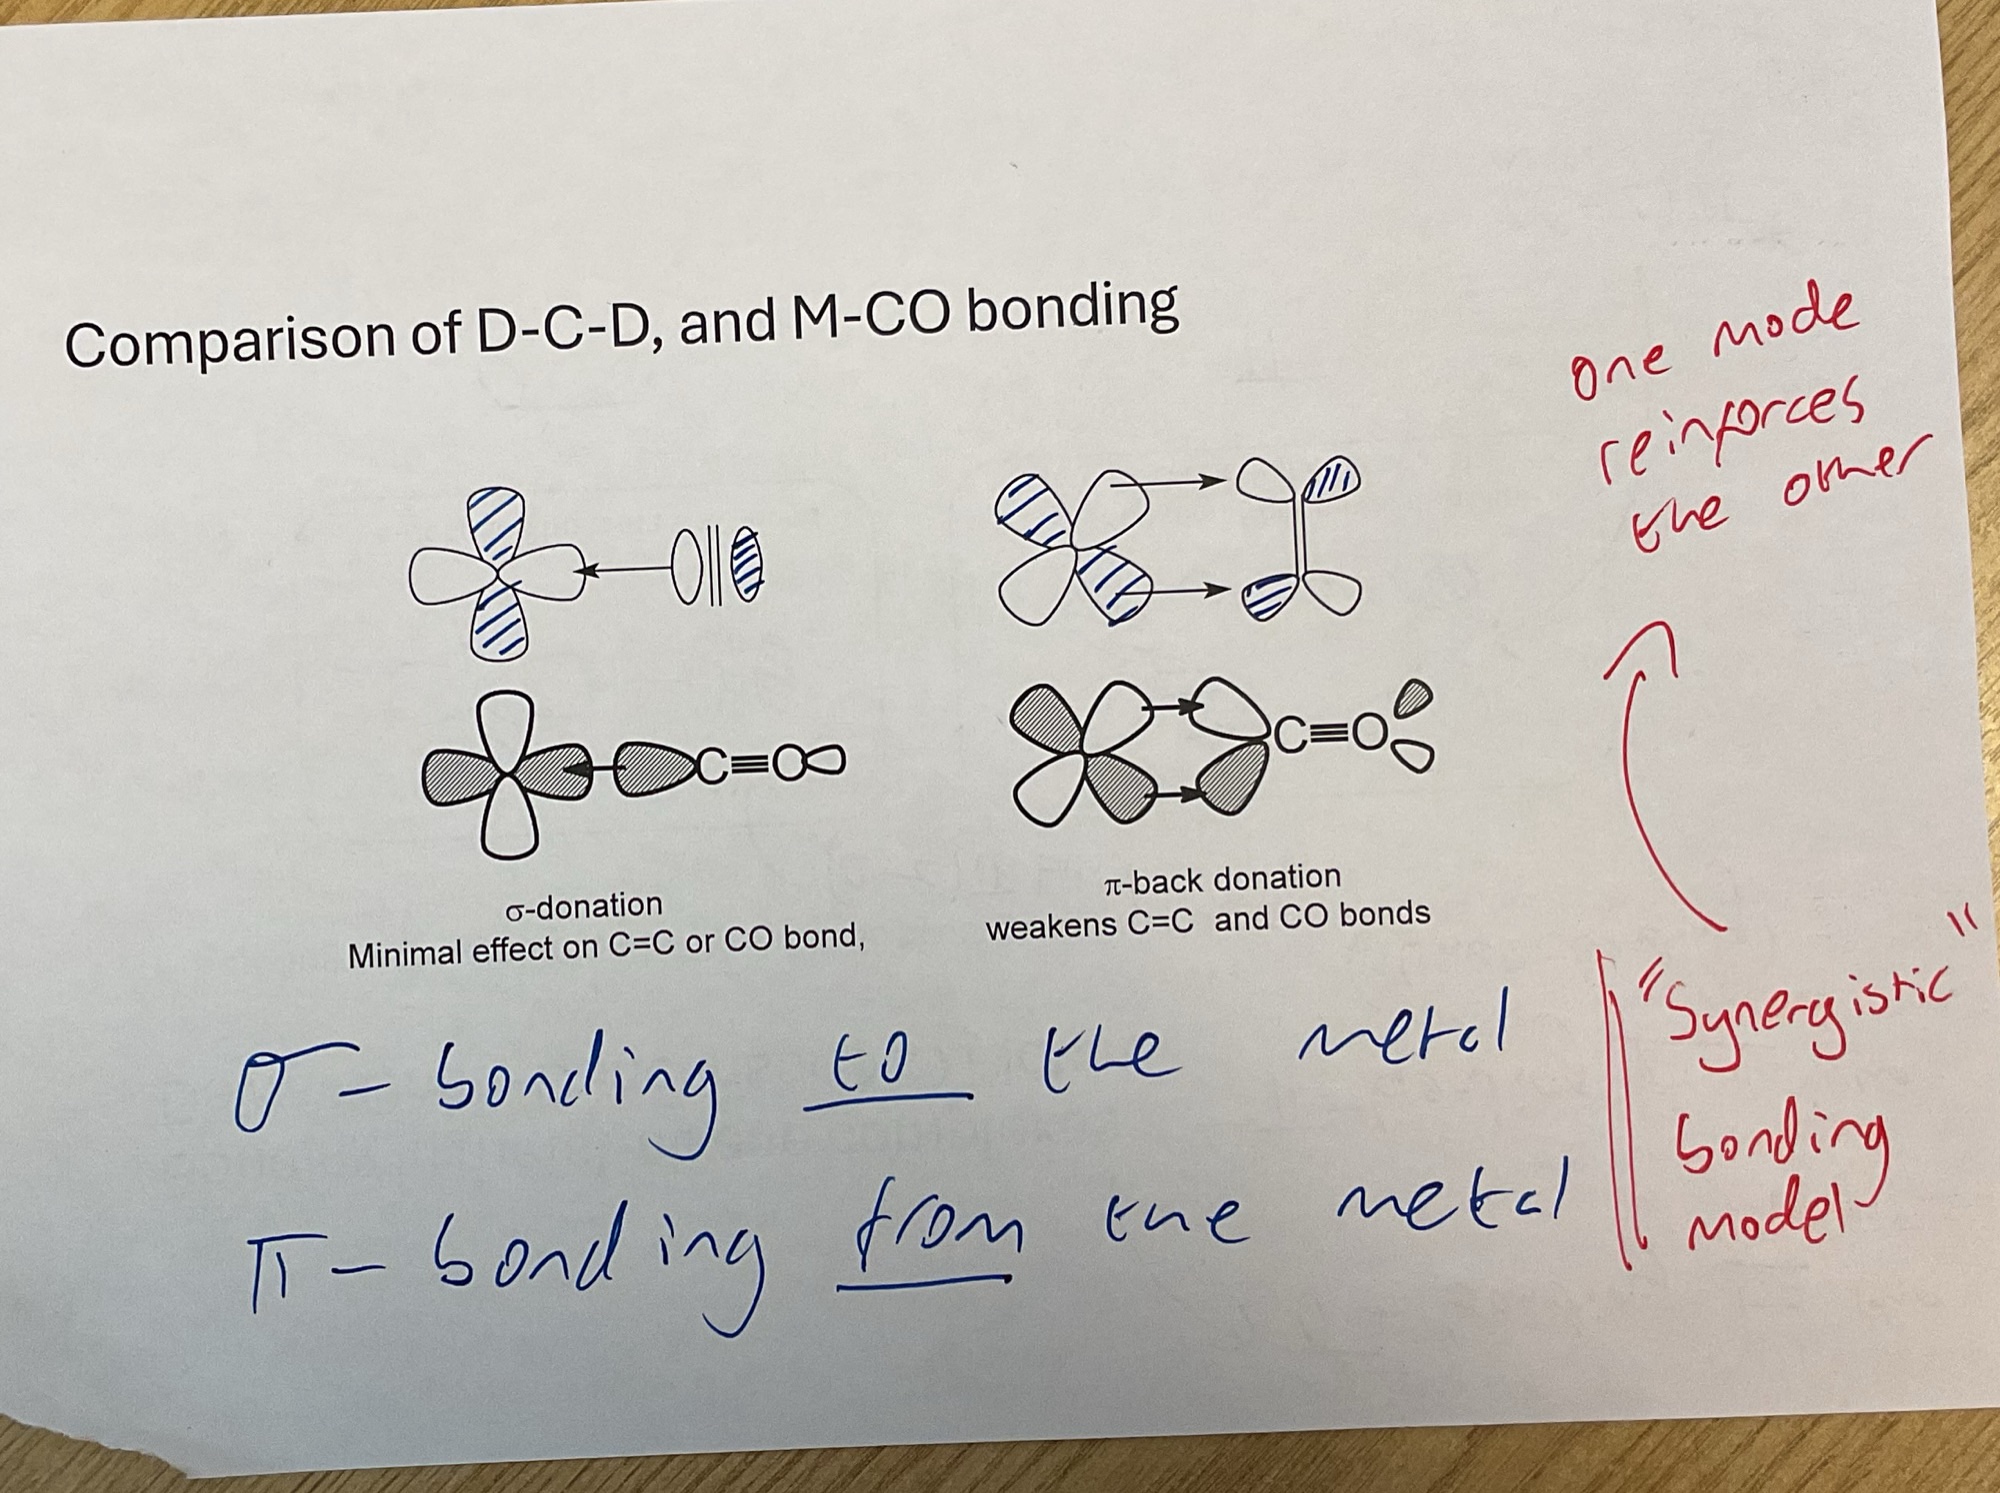 Comparison of D-C-D, and M-CO bonding
C≡O
C≡O
σ-donation
Minimal effect on C=C or CO bond,
π-back donation
weakens C=C and CO bonds
σ- bonding to the metal
π- bonding from the metal
one mode
reinforces
the other
"Synergistic"
bonding
model